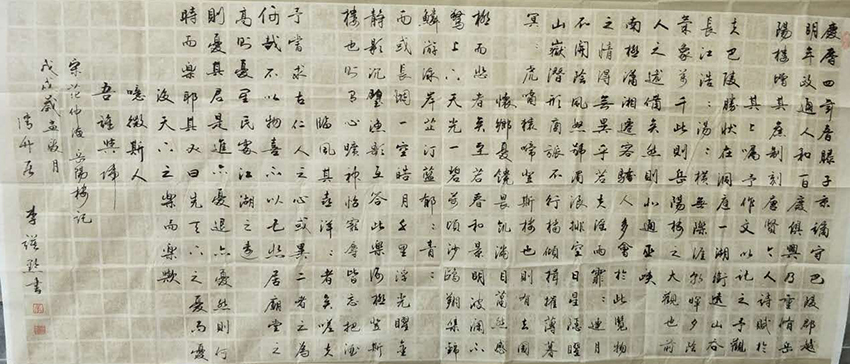 慶曆四年春滕子京謫守巴陵郡越
明年政通人和百廢俱興乃重修岳
陽樓增其舊制刻唐賢今人詩賦於
其上屬予作文以記之予觀
夫巴陵勝狀在洞庭一湖銜遠山吞
長江浩々湯々橫無際涯朝暉夕陰
氣象萬千此則岳陽樓之大觀也前
人之述備矣然則北通巫峽
南極瀟湘遷客騷人多會於此覽物
之情得無異乎若夫淫雨霏々連月
不開陰風怒號濁浪排空日星隱曜
山嶽潛形商旅不行檣傾楫摧薄暮
冥々虎嘯猿啼登斯樓也則有去國
懷鄉憂讒畏譏滿目蕭然感
極而悲者矣至若春和景明波瀾不
驚上下天光一碧萬頃沙鷗翔集錦
鱗游泳岸芷汀蘭郁々青々
而或長煙一空皓月千里浮光躍金
靜影沉璧漁歌互答此樂何極登斯
樓也則有心曠神怡寵辱皆忘把酒
臨風其喜洋々者矣嗟夫
予嘗求古仁人之心或異二者之為
何哉不以物喜不以己悲居廟堂之
高則憂其民處江湖之遠
則憂其君是進亦憂退亦憂然則何
時而樂耶其必曰先天下之憂而憂
後天下之樂而樂歟
噫微斯人
吾誰與歸
宋范仲淹岳陽樓記
戊戌歲孟夏月
李書